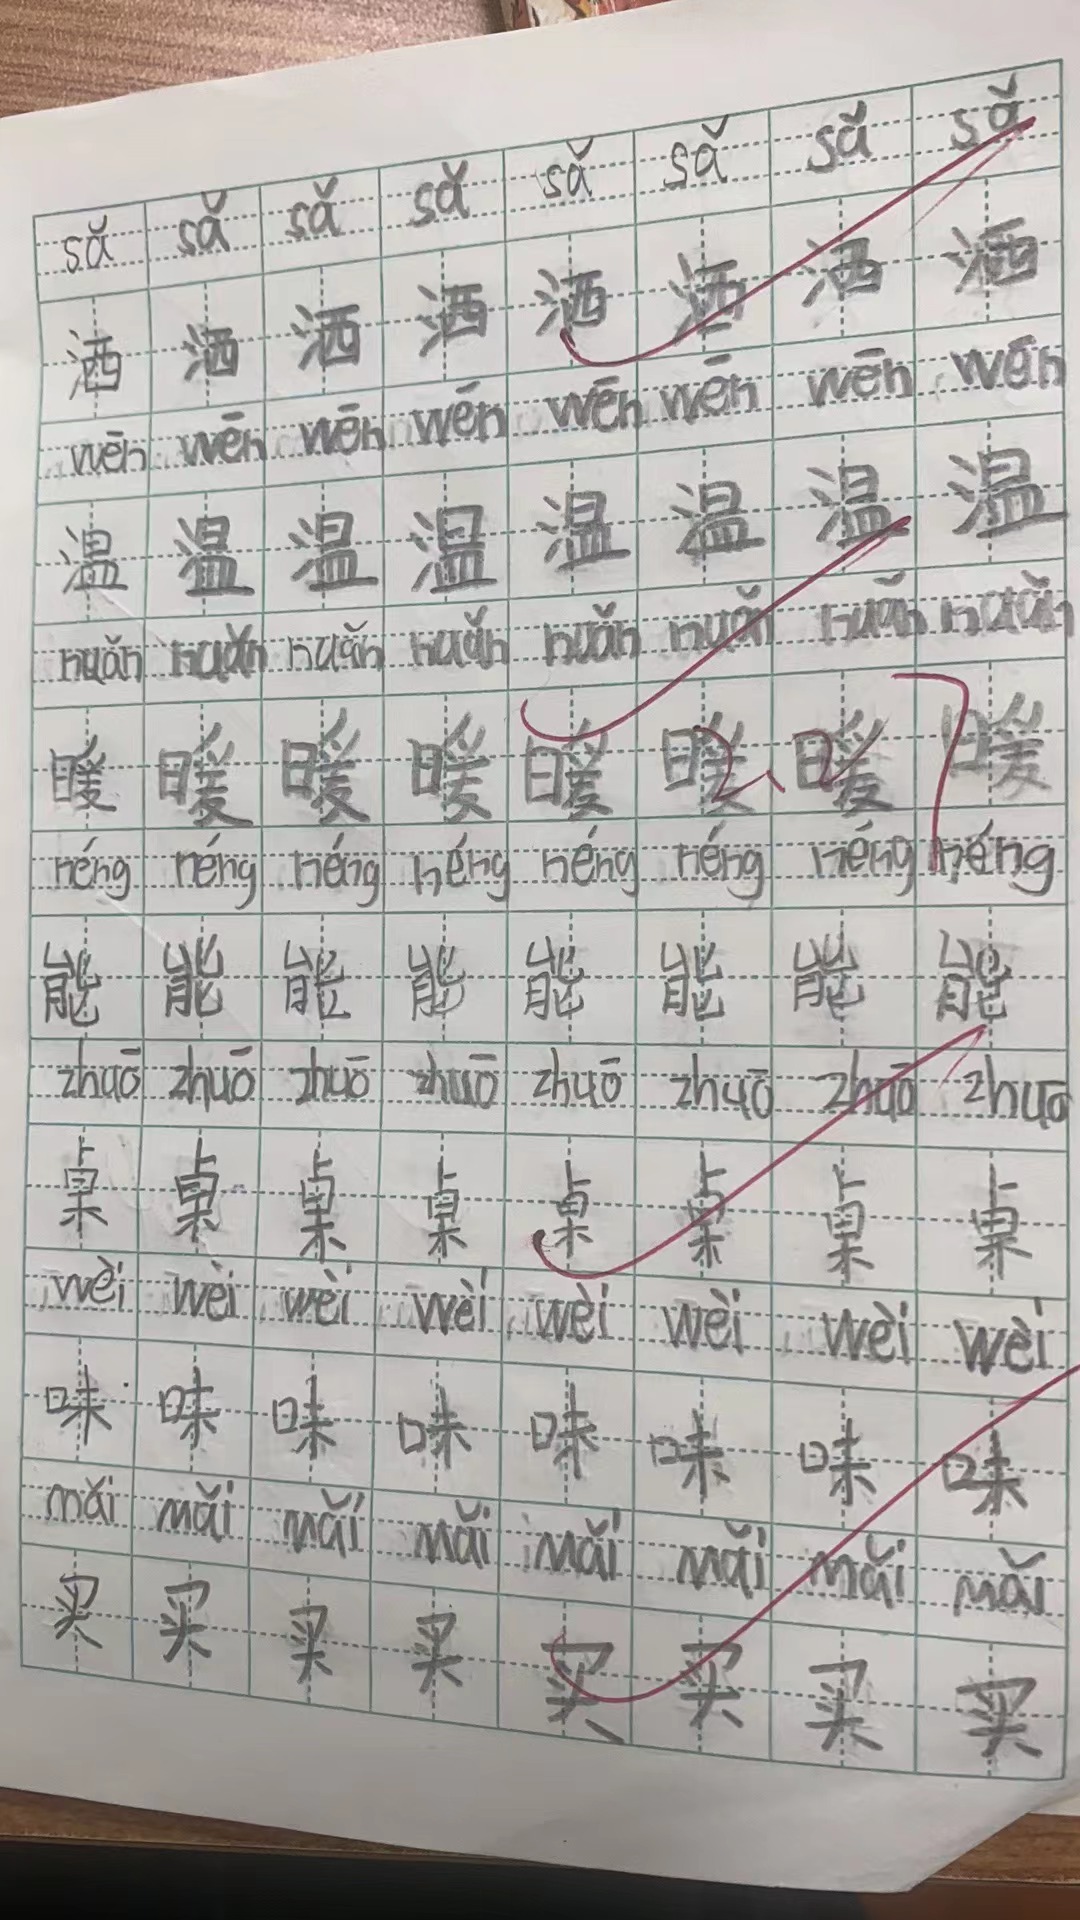 sǎ sǎ sǎ sǎ sǎ sǎ sǎ sǎ
洒 洒 洒 洒 洒 洒 洒 洒
wēn wēn wēn wēn wēn wēn wēn wēn
温 温 温 温 温 温 温 温
nuǎn nuǎn nuǎn nuǎn nuǎn nuǎn nuǎn nuǎn
暖 暖 暖 暖 暖 暖 暖 暖
néng néng néng néng néng néng néng néng
能 能 能 能 能 能 能 能
zhuō zhuō zhuō zhuō zhuō zhuō zhuō zhuō
桌 桌 桌 桌 桌 桌 桌 桌
wèi wèi wèi wèi wèi wèi wèi wèi
味 味 味 味 味 味 味 味
mǎi mǎi mǎi mǎi mǎi mǎi mǎi mǎi
买 买 买 买 买 买 买 买